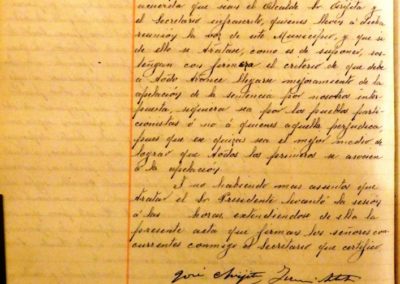 acuerda que sean el Alcalde Sr Crijota y
el Secretario infrascrito, quienes lleven a dicha
reunión la voz de este Municipio, y que si
de ello se tratase, como es de suponer, sos-
tengan con firmeza el criterio de que debe
a todo trance llegarse mejoramiento de la
apelación de la sentencia por nosotros inter-
puesta, siquiera sea por los pueblos parti-
cionistas ó no á quienes aquella perjudica,
pues que es quizas sea el mejor medio de
lograr que todos los primeros se asocien
á la apelación
Y no habiendo mas asuntos que
tratar el Sr Presidente levantó la sesión
á las horas, extendiendose de ella la
presente acta que firman los señores con-
currentes conmigo el Secretario que certifico.
José